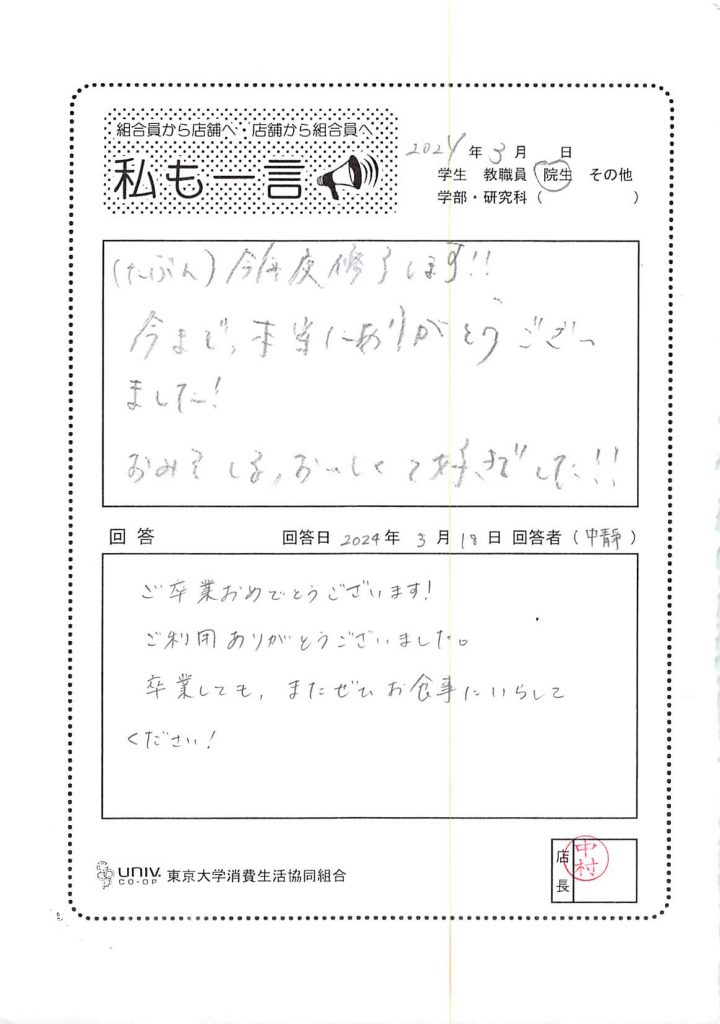 組合員から店舗へ・店舗から組合員へ
私も一言
2024年3月 日
学生 教職員 院生 その他
学部・研究科( )
(たぶん)今年度修了します!!
今まで、本当にありがとうござい
ました!
おみそしる、おいしくて好きでした!!
回答 回答日 2024年 3月 18日 回答者(中静)
ご卒業おめでとうございます!
ご利用ありがとうございました。
卒業しても、またぜひお食事にいらして
ください!
UNIV.
CO-OP 東京大学消費生活協同組合
店長
中村